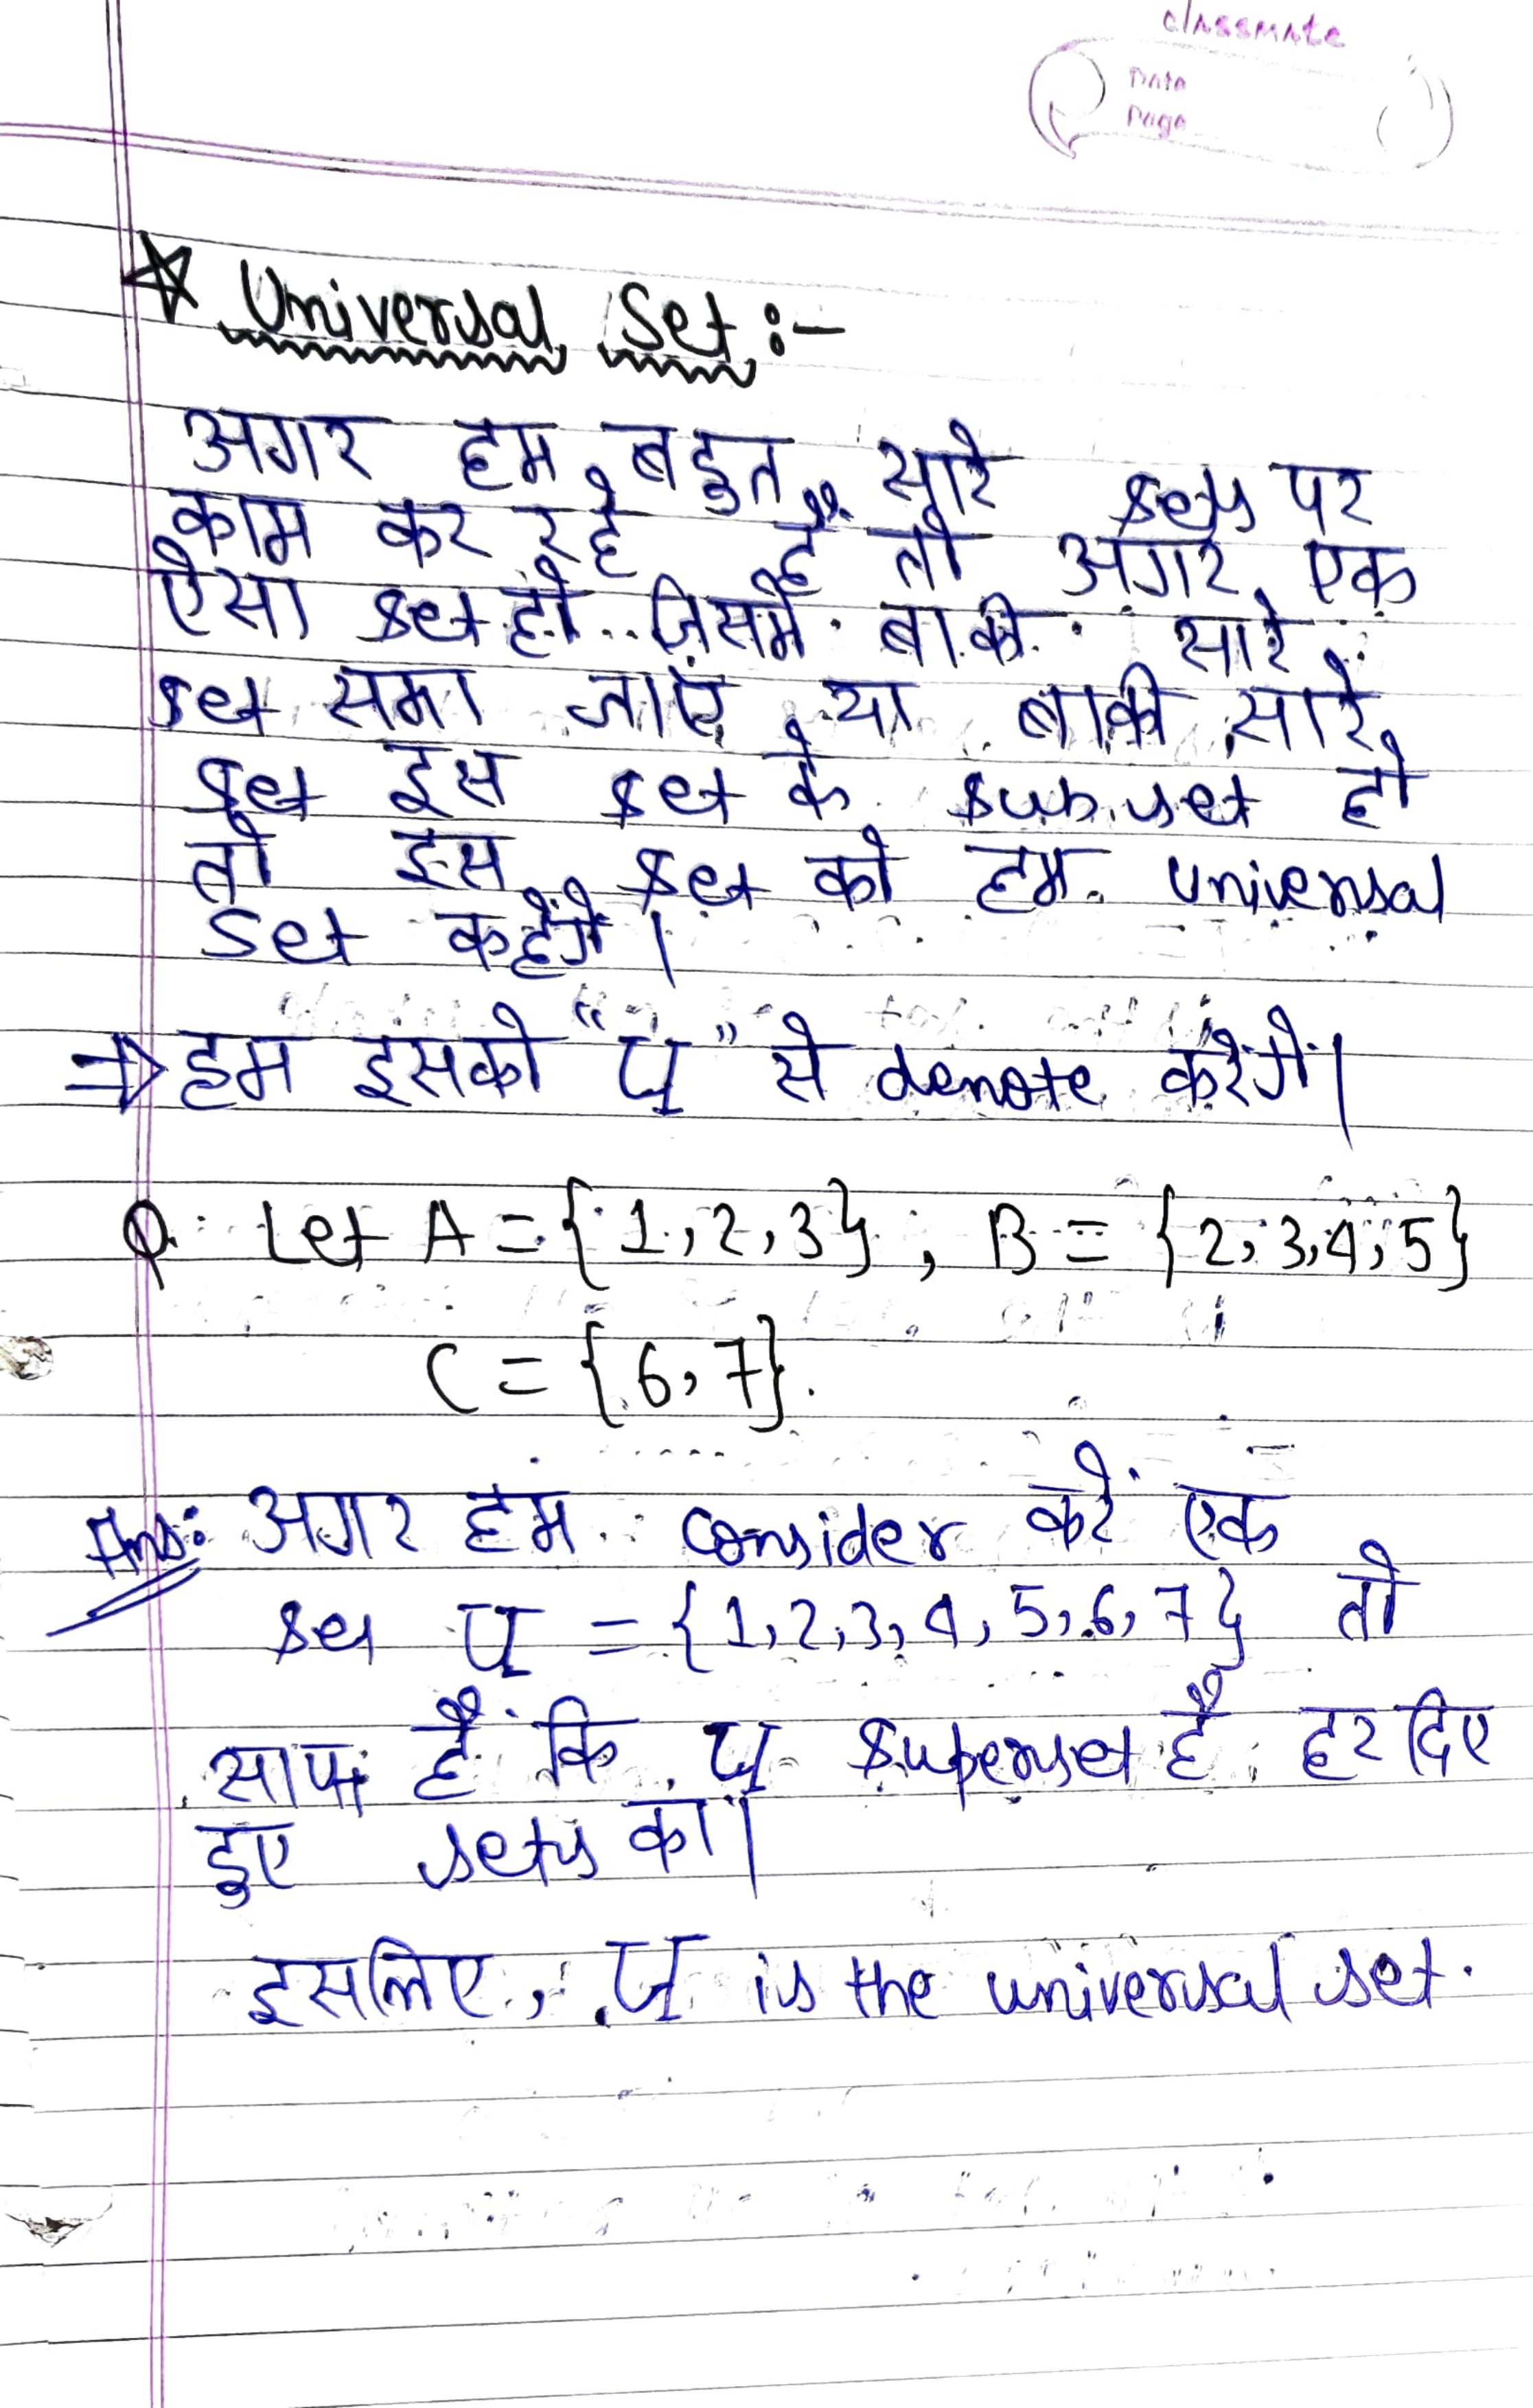 classmate
Date
Page
☆ Universal Set :-
अगर हम बहुत सारे sets पर
काम कर रहे हैं तो अगर एक
ऐसा set हो जिसमें बाकी सारे
set समा जाएं या बाकी सारे
set इस set के subset हो
तो इस set को हम universal
set कहेंगे।
⇒ हम इसको "U" से denote करेंगे।
Q. Let A = {1, 2, 3}, B = {2, 3, 4, 5}
C = {6, 7}.
Ans: अगर हम consider करें एक
set U = {1, 2, 3, 4, 5, 6, 7} तो
साफ है कि U superset है हर दिए
हुए sets का।
इसलिए, U is the universal set.